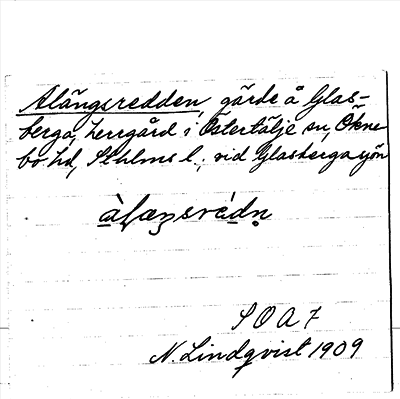 Alängsredden, gärde å Glas-
berga, herrgård i Östertälje sn, Ökne-
bo hd, Sthlms l.; vid Glasbergasjön
S O A 7
N. Lindqvist 1909